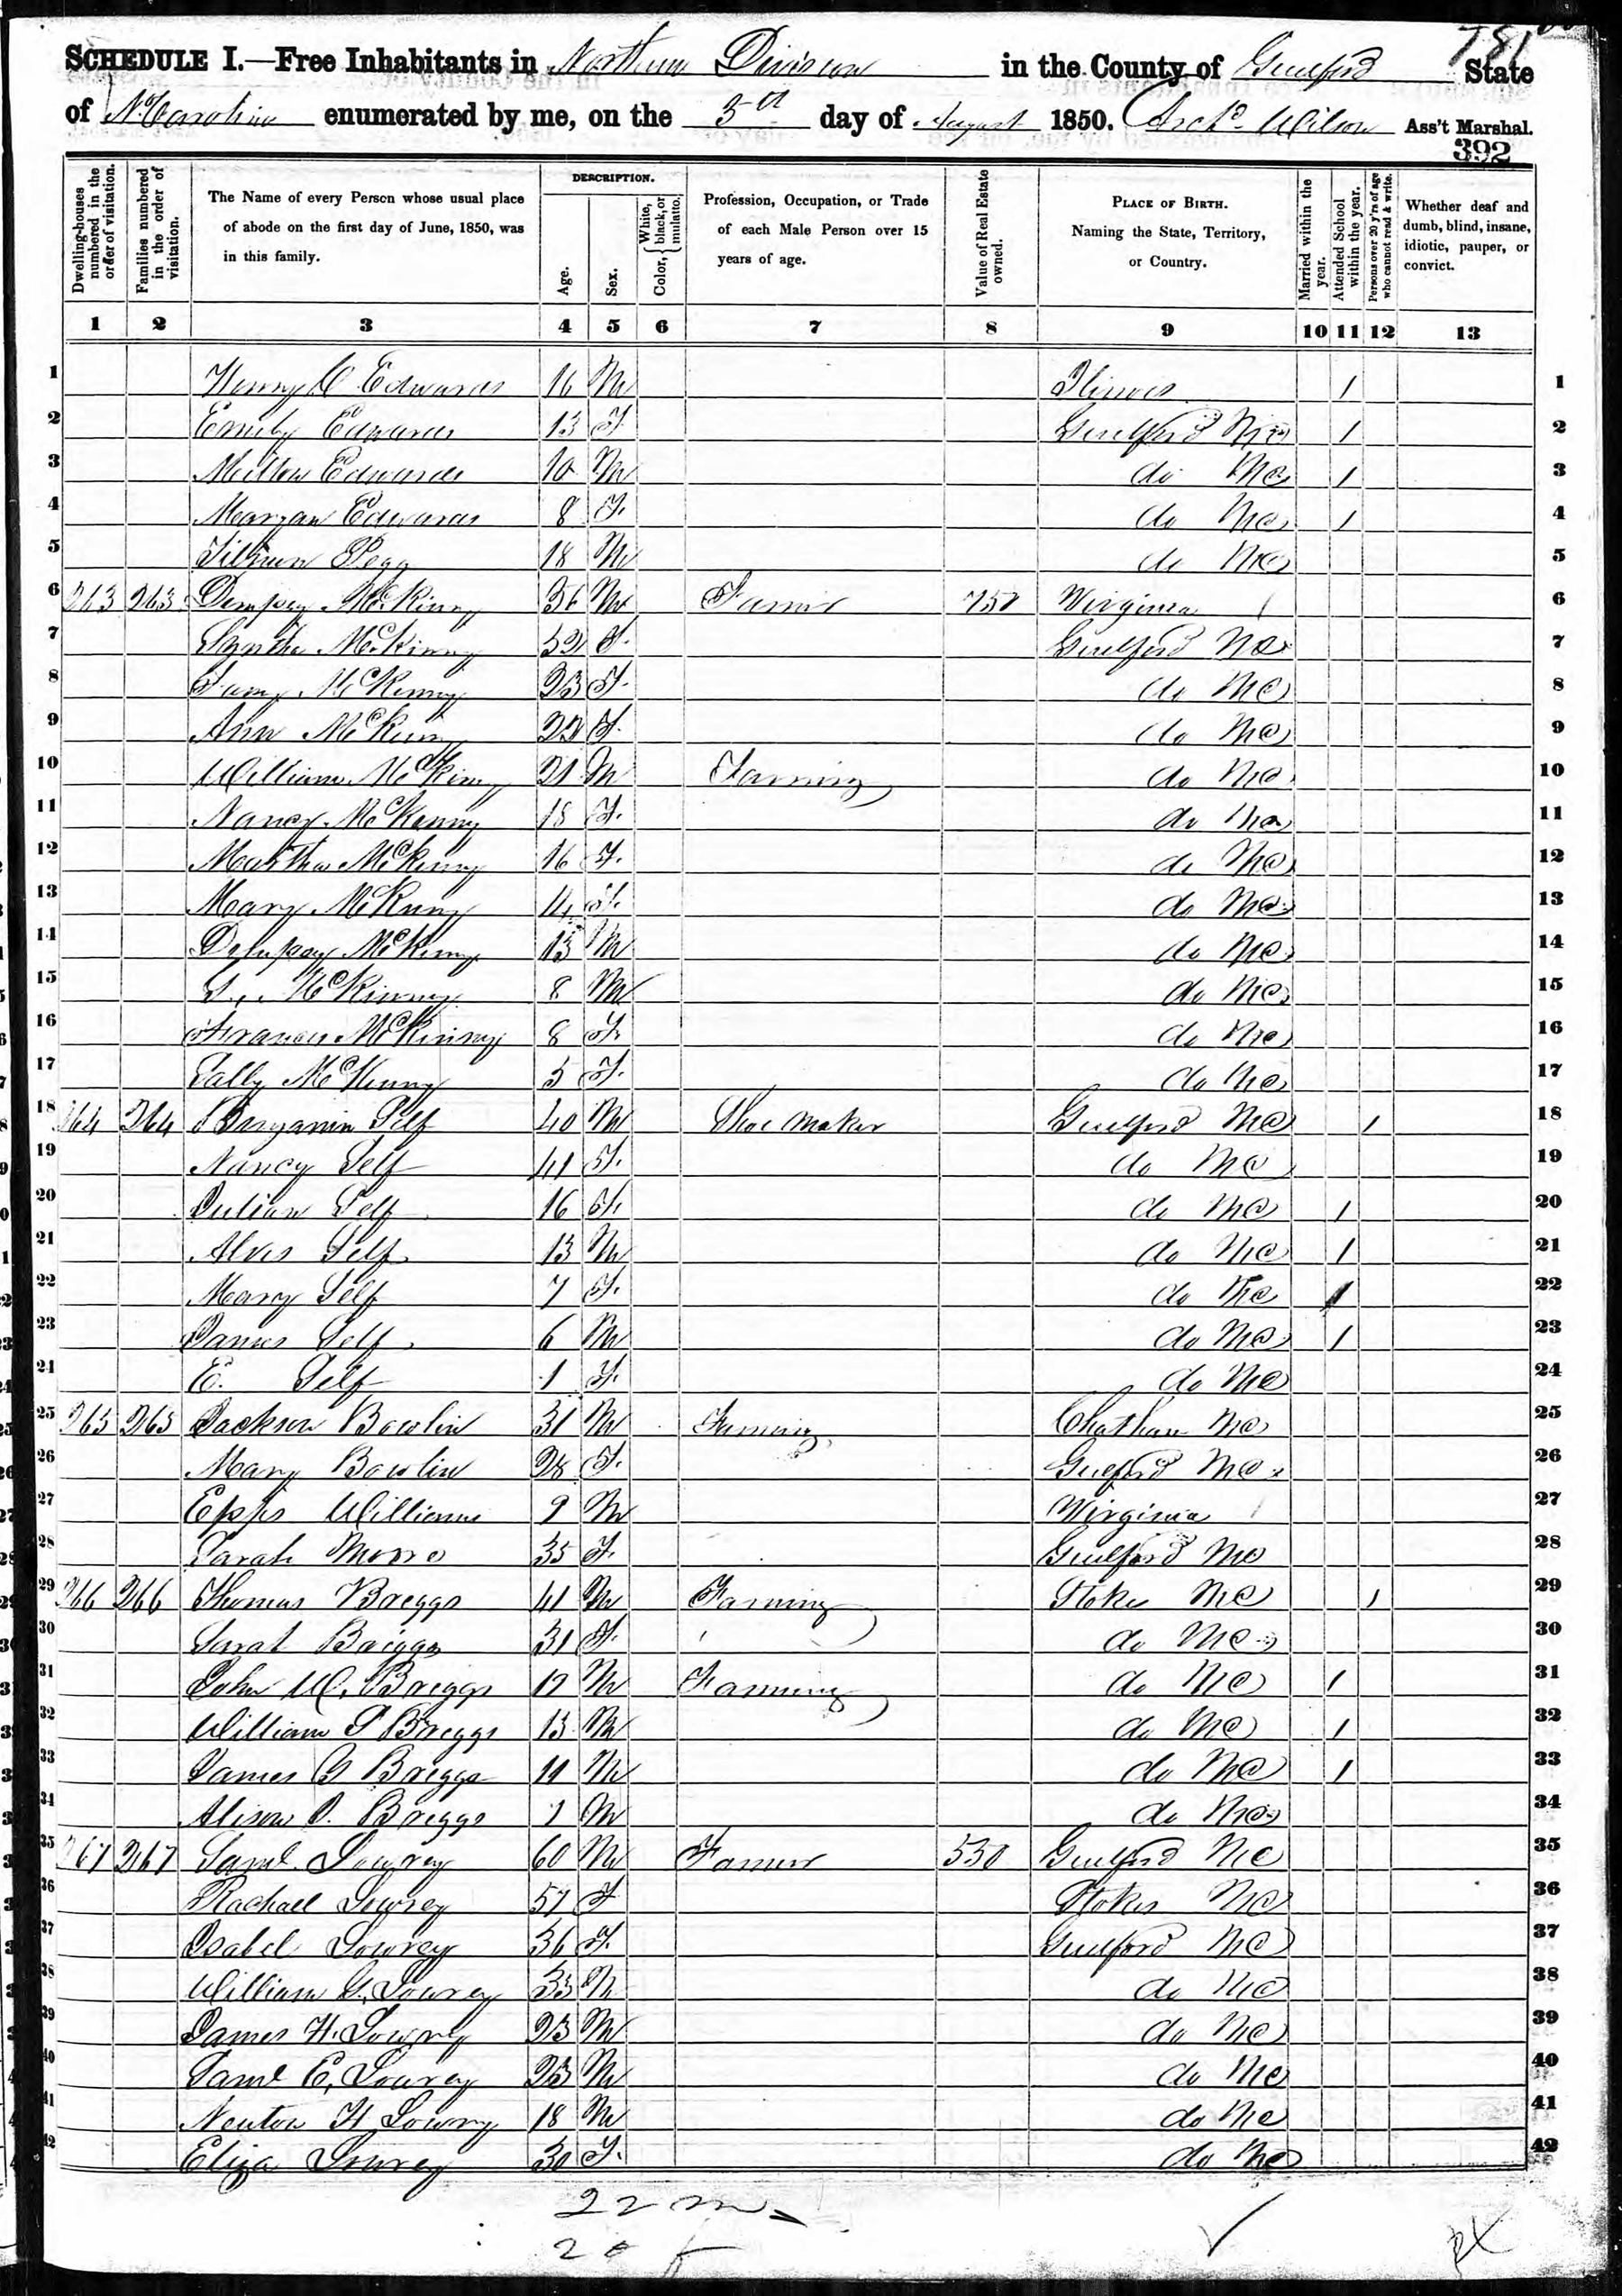 781
SCHEDULE I.—Free Inhabitants in Northern Division in the County of Guilford State
of N. Carolina enumerated by me, on the 5th day of August 1850. Archd Wilson Ass't Marshal.
392
Dwelling-houses numbered in the order of visitation.
Families numbered in the order of visitation.
The Name of every Person whose usual place of abode on the first day of June, 1850, was in this family.
DESCRIPTION.
Age.
Sex.
Color, { White, black, or mulatto.
Profession, Occupation, or Trade of each Male Person over 15 years of age.
Value of Real Estate owned.
PLACE OF BIRTH. Naming the State, Territory, or Country.
Married within the year.
Attended School within the year.
Persons over 20 y'rs of age who cannot read & write.
Whether deaf and dumb, blind, insane, idiotic, pauper, or convict.
1 2 3 4 5 6 7 8 9 10 11 12 13
1 Henry C Edwards 16 M Ilinois 1 1
2 Emily Edwards 13 F Guilford NC 1 2
3 Milton Edwards 10 M do NC 1 3
4 Edwards 8 F. do NC 1 4
5 Tilmon Pegg 18 M do NC 5
6 263 263 Dempsy McKinny 56 M Farmer 750 Virginia 6
7 McKinny 52 F. Guilford NC 7
8 McKinny 23 F. do NC 8
9 Ann McKinny 22 F. do NC 9
10 William McKinny 21 M Farming do NC 10
11 Nancy McKinny 18 F. do NC 11
12 Martha McKinny 16 F. do NC 12
13 Mary McKinny 14 F. do NC 13
14 Dempsey McKinny 13 M do NC 14
15 S. McKinney 8 M do NC 15
16 Frances McKinny 8 F. do NC 16
17 Sally McKinny 5 F. do NC 17
18 264 264 Benjamin Self 40 M Shoe maker Guilford NC 1 18
19 Nancy Self 41 F. do NC 19
20 Julian Self 16 F. do NC 1 20
21 Alves Self 13 M do NC 1 21
22 Mary Self 7 F. do NC 1 22
23 James Self 6 M do NC 1 23
24 E. Self 1 F. do NC 24
25 265 265 Jackson Bowlin 31 M Farming Chatham NC 25
26 Mary Bowlin 28 F. Guilford NC 26
27 Epps Williams 9 M Virginia 27
28 Sarah 35 F. Guilford NC 28
29 266 266 Thomas Briggs 41 M Farming Stokes NC 1 29
30 Sarah Briggs 31 F. do NC 30
31 John W. Briggs 17 M Farming do NC 1 31
32 William P Briggs 13 M do NC 1 32
33 James G Briggs 11 M do NC 1 33
34 Alison Briggs 1 M do NC 34
35 267 267 Saml. Lowrey 60 M Farmer 550 Guilford NC 35
36 Rachael Lowrey 57 F Stokes NC 36
37 Isabel Lowrey 36 F. Guilford NC 37
38 William G. Lowrey 33 M do NC 38
39 James H. Lowrey 23 M do NC 39
40 Saml E. Lowrey 23 M do NC 40
41 Newton H Lowry 18 M do NC 41
42 Eliza Lowrey 30 F. do NC 42
22 m
20 f